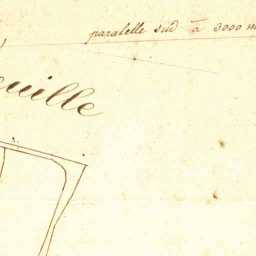 paralelle sud à 3000 m
euille